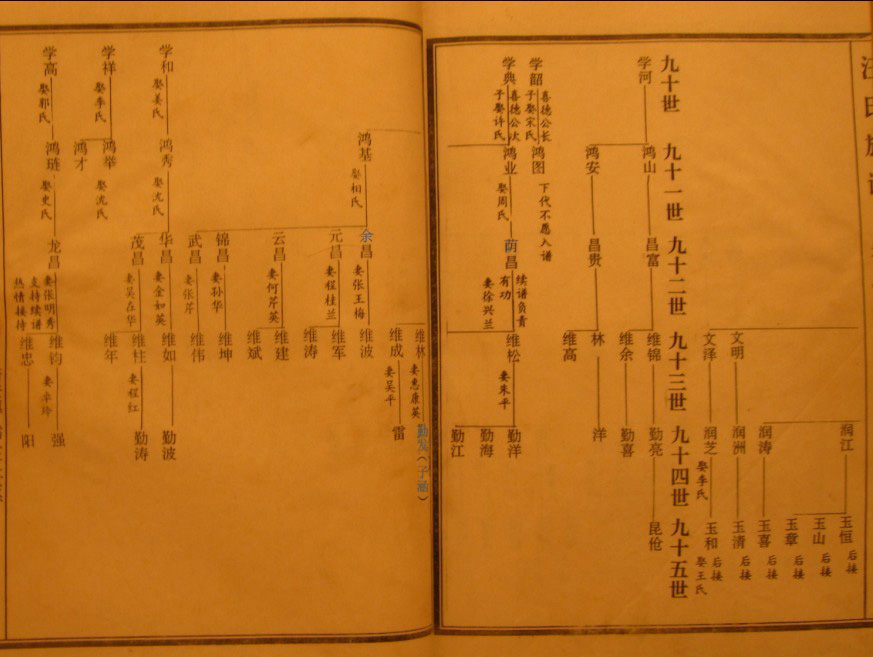 九十世
九十一世
九十二世
九十三世
九十四世
九十五世
润江
玉恒
后接
玉山
后接
玉章
后接
润涛
玉喜
后接
文明
润洲
玉清
后接
文泽
润芝
娶季氏
玉和
后接
娶王氏
学河
鸿山
昌富
维锦
勤亮
昆伧
维余
勤喜
鸿安
昌贵
林
洋
维高
学韶
喜德公长
子娶宋氏
鸿图
下代不愿入谱
学典
喜德公次
子娶许氏
鸿业
娶周氏
荫昌
续谱负责
有功
妻徐兴兰
维松
妻朱平
勤洋
勤海
勤江
维林
妻惠康英
勤发（子涵）
维成
妻吴平
雷
鸿基
娶相氏
余昌
妻张王梅
维波
元昌
妻程桂兰
维军
维涛
云昌
妻何芹英
维建
维斌
锦昌
妻孙华
维坤
武昌
妻张芹
维伟
学和
娶姜氏
鸿秀
娶沈氏
华昌
妻金如英
维如
勤波
茂昌
妻吴在华
维柱
妻程红
勤涛
维年
学祥
娶季氏
鸿举
娶沈氏
鸿才
学高
娶郭氏
鸿琏
娶史氏
龙昌
妻张明秀
支持续谱
热情接待
维钧
强
维忠
阳